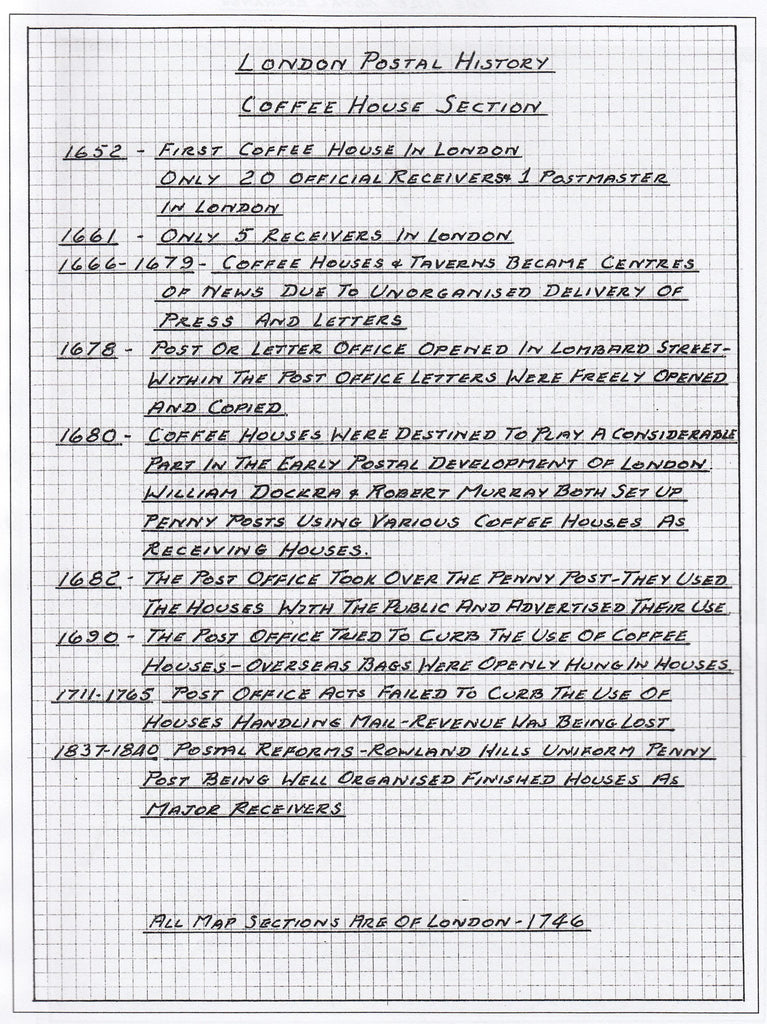 LONDON POSTAL HISTORY
COFFEE HOUSE SECTION
1652 - FIRST COFFEE HOUSE IN LONDON
ONLY 20 OFFICIAL RECEIVERS & 1 POSTMASTER
IN LONDON
1661 - ONLY 5 RECEIVERS IN LONDON
1666-1679 - COFFEE HOUSES & TAVERNS BECAME CENTRES
OF NEWS DUE TO UNORGANISED DELIVERY OF
PRESS AND LETTERS
1678 - POST OR LETTER OFFICE OPENED IN LOMBARD STREET-
WITHIN THE POST OFFICE LETTERS WERE FREELY OPENED
AND COPIED
1680 - COFFEE HOUSES WERE DESTINED TO PLAY A CONSIDERABLE
PART IN THE EARLY POSTAL DEVELOPMENT OF LONDON
WILLIAM DOCKRA & ROBERT MURRAY BOTH SET UP
PENNY POSTS USING VARIOUS COFFEE HOUSES AS
RECEIVING HOUSES.
1682 - THE POST OFFICE TOOK OVER THE PENNY POST-THEY USED
THE HOUSES WITH THE PUBLIC AND ADVERTISED THEIR USE
1690 - THE POST OFFICE TRIED TO CURB THE USE OF COFFEE
HOUSES - OVERSEAS BAGS WERE OPENLY HUNG IN HOUSES
1711-1765 POST OFFICE ACTS FAILED TO CURB THE USE OF
HOUSES HANDLING MAIL - REVENUE WAS BEING LOST
1837-1840 POSTAL REFORMS - ROWLAND HILLS UNIFORM PENNY
POST BEING WELL ORGANISED FINISHED HOUSES AS
MAJOR RECEIVERS
ALL MAP SECTIONS ARE OF LONDON - 1746